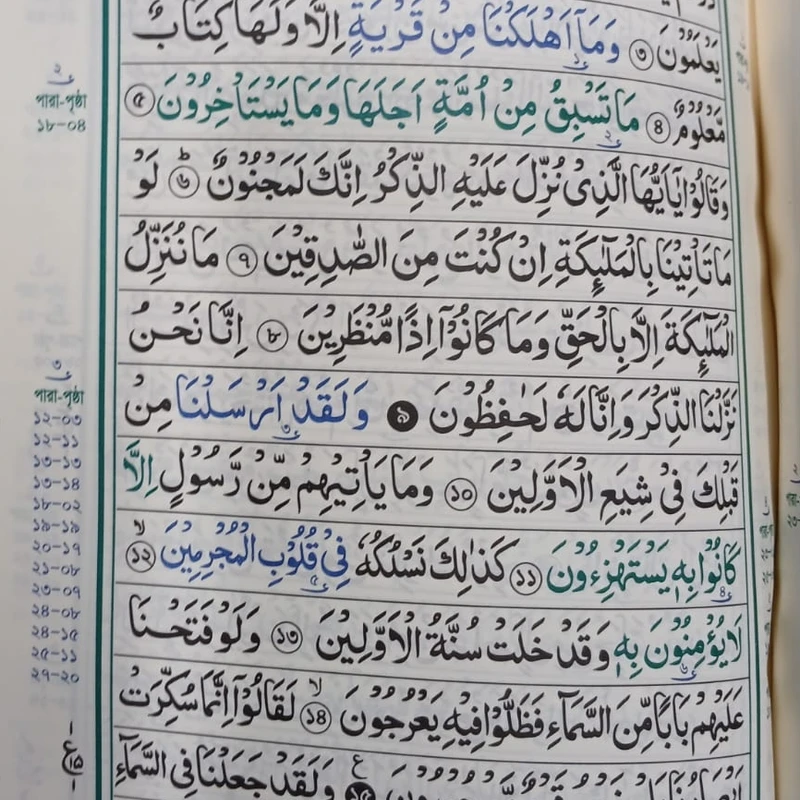 يَعْلَمُوْنَ ۝৩ وَمَاۤ اَهْلَكْنَا مِنْ قَرْيَةٍ اِلَّا وَلَهَا كِتَابٌ
مَّعْلُوْمٌ ۝৪ مَا تَسْبِقُ مِنْ اُمَّةٍ اَجَلَهَا وَمَا يَسْتَاْخِرُوْنَ ۝৫
وَقَالُوْا يٰۤاَيُّهَا الَّذِىْ نُزِّلَ عَلَيْهِ الذِّكْرُ اِنَّكَ لَمَجْنُوْنٌ ؕ ۝৬ لَوْ
مَا تَاْتِيْنَا بِالْمَلٰٓئِكَةِ اِنْ كُنْتَ مِنَ الصّٰدِقِيْنَ ۝৭ مَا نُنَزِّلُ
الْمَلٰٓئِكَةَ اِلَّا بِالْحَقِّ وَمَا كَانُوْۤا اِذًا مُّنْظَرِيْنَ ۝৮ اِنَّا نَحْنُ
نَزَّلْنَا الذِّكْرَ وَاِنَّا لَهٗ لَحٰفِظُوْنَ ۝৯ وَلَقَدْ اَرْسَلْنَا مِنْ
قَبْلِكَ فِىْ شِيَعِ الْاَوَّلِيْنَ ۝১০ وَمَا يَاْتِيْهِمْ مِّنْ رَّسُوْلٍ اِلَّا
كَانُوْا بِهٖ يَسْتَهْزِءُوْنَ ۝১১ كَذٰلِكَ نَسْلُكُهٗ فِىْ قُلُوْبِ الْمُجْرِمِيْنَ ۙ ۝১২
لَا يُؤْمِنُوْنَ بِهٖ وَقَدْ خَلَتْ سُنَّةُ الْاَوَّلِيْنَ ۝১৩ وَلَوْ فَتَحْنَا
عَلَيْهِمْ بَابًا مِّنَ السَّمَآءِ فَظَلُّوْا فِيْهِ يَعْرُجُوْنَ ۙ ۝১৪ لَقَالُوْۤا اِنَّمَا سُكِّرَتْ
وَلَقَدْ جَعَلْنَا فِى السَّمَآءِ
২
পারা-পৃষ্ঠা
১৮-০৪
৩
পারা-পৃষ্ঠা
১২-০৩
১২-১১
১৩-১৩
১৩-১৪
১৮-০২
১৯-১৯
২০-১৭
২১-০৮
২৩-০৭
২৪-০৮
২৪-১৫
২৫-১১
২৭-২০